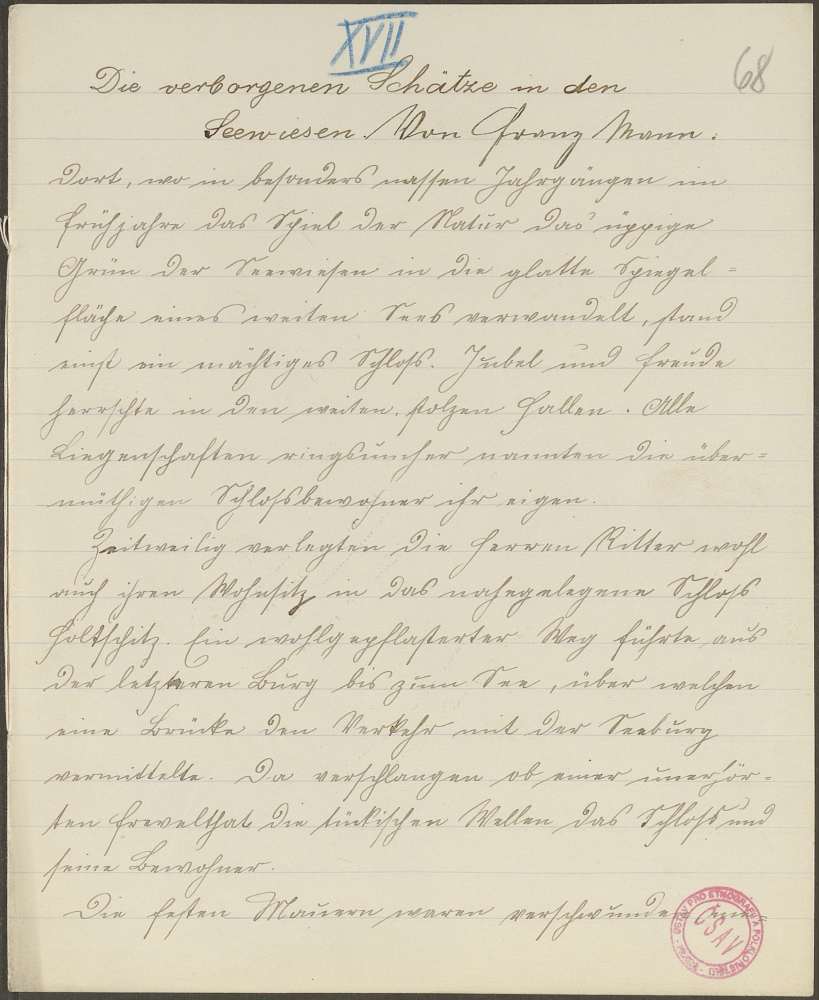 XVII
68
Die verborgenen Schätze in den
Seewiesen. Von Franz Mann.
Dort, wo in besonders nassen Jahrgängen im
Frühjahre das Spiel der Natur das üppige
Grün der Seewiesen in die glatte Spiegel=
fläche eines weiten Sees verwandelt, stand
einst ein mächtiges Schloss. Jubel und Freude
herrschte in den weiten, stolzen Hallen. Alle
Liegenschaften ringsumher nannten die über=
müthigen Schlossbewohner ihr eigen.
Zeitweilig verlegten die Herren Ritter wohl
auch ihren Wohnsitz in das nahegelegene Schloss
Holtschitz. Ein wohlgepflasterter Weg führte aus
der letzteren Burg bis zum See, über welchen
eine Brücke den Verkehr mit der Seeburg
vermittelte. Da verschlangen ob einer unerhör=
ten Frevelthat die tückischen Wellen das Schloss und
seine Bewohner.
Die festen Mauern waren verschwunden
ÚSTAV PRO ETNOGRAFII A FOLKLORISTIKU
ČSAV